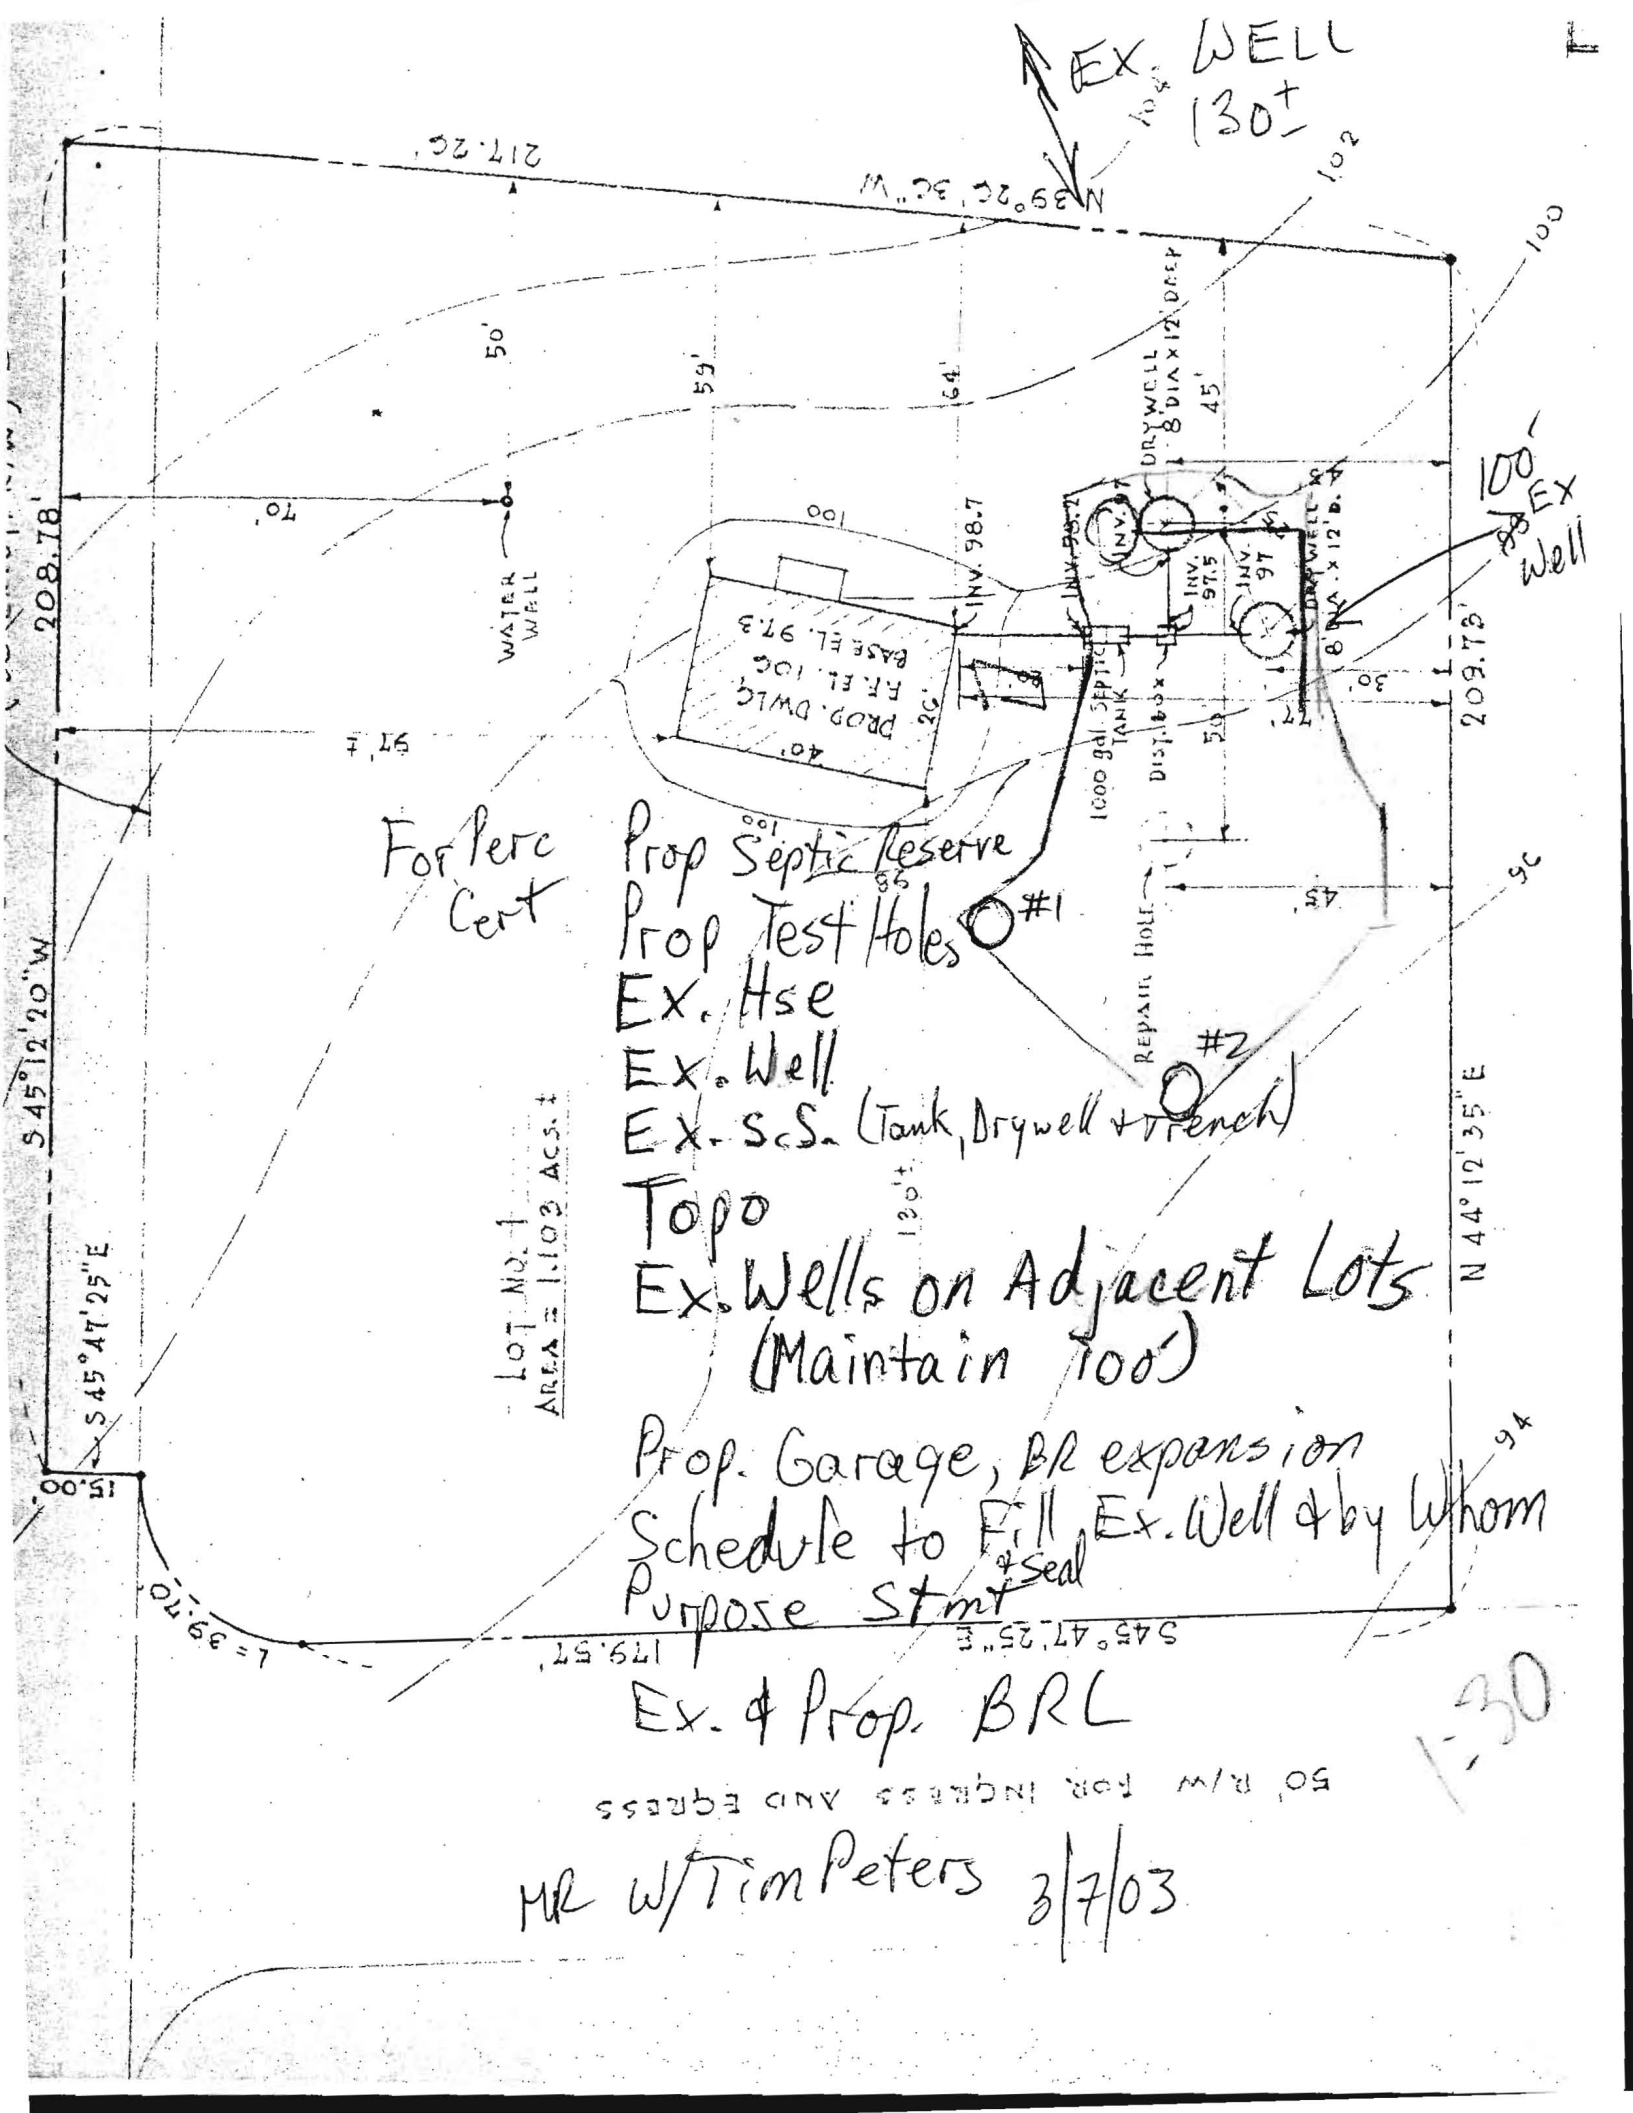 EX. WELL
130±
104
102
100
217.26'
N 39° 26' 36" W
50'
59'
64'
45'
DRYWELL
8' DIA x 12' DEEP
208.78'
70'
WATER
WELL
100
INV. 98.7
INV. 98.2
INV. 97
INV.
97.5
INV.
97
100'
EX
Well
PROP. DWLG
F.F. EL. 106
BASE EL. 97.3
40'
26'
97'±
1000 gal SEPTIC
TANK
DIST. BOX
50'
77'
30'
209.73'
100
98
96
45'
REPAIR HOLE
For Perc
Cert
Prop Septic Reserve
Prop Test Holes
#1
#2
Ex. Hse
Ex. Well
Ex. S.S. (Tank, Drywell & Trench)
Topo
Ex. Wells on Adjacent Lots
(Maintain 100')
Prop. Garage, BR expansion
Schedule to Fill & Seal Ex. Well & by Whom
Purpose Stmt
S 45° 12' 20" W
S 45° 47' 25" E
15.00'
LOT NO. 1
AREA = 1.103 ACS. ±
130'±
N 44° 12' 35" E
94
L = 39.70'
179.57'
S 45° 47' 25" E
Ex. & Prop. BRL
1:30
50' R/W FOR INGRESS AND EGRESS
MR W/Tim Peters 3/7/03